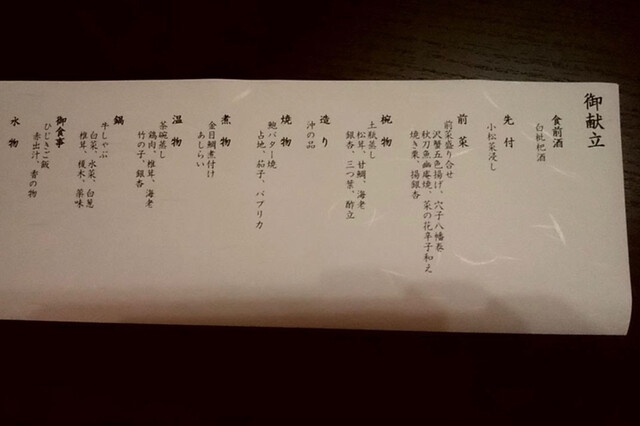 御献立
食前酒
白枇杷酒
先付
小松菜浸し
前菜
前菜盛り合せ
沢蟹五色揚げ、穴子八幡巻
秋刀魚幽庵焼、菜の花辛子和え
焼き栗、揚銀杏
椀物
土瓶蒸し
松茸、甘鯛、海老
銀杏、三つ葉、酢立
造り
沖の品
焼物
鮑バター焼
占地、茄子、パプリカ
煮物
金目鯛煮付け
あしらい
温物
茶碗蒸し
鶏肉、椎茸、海老
竹の子、銀杏
鍋
牛しゃぶ
白菜、水菜、白葱
椎茸、榎木、薬味
御食事
ひじきご飯
赤出汁、香の物
水物